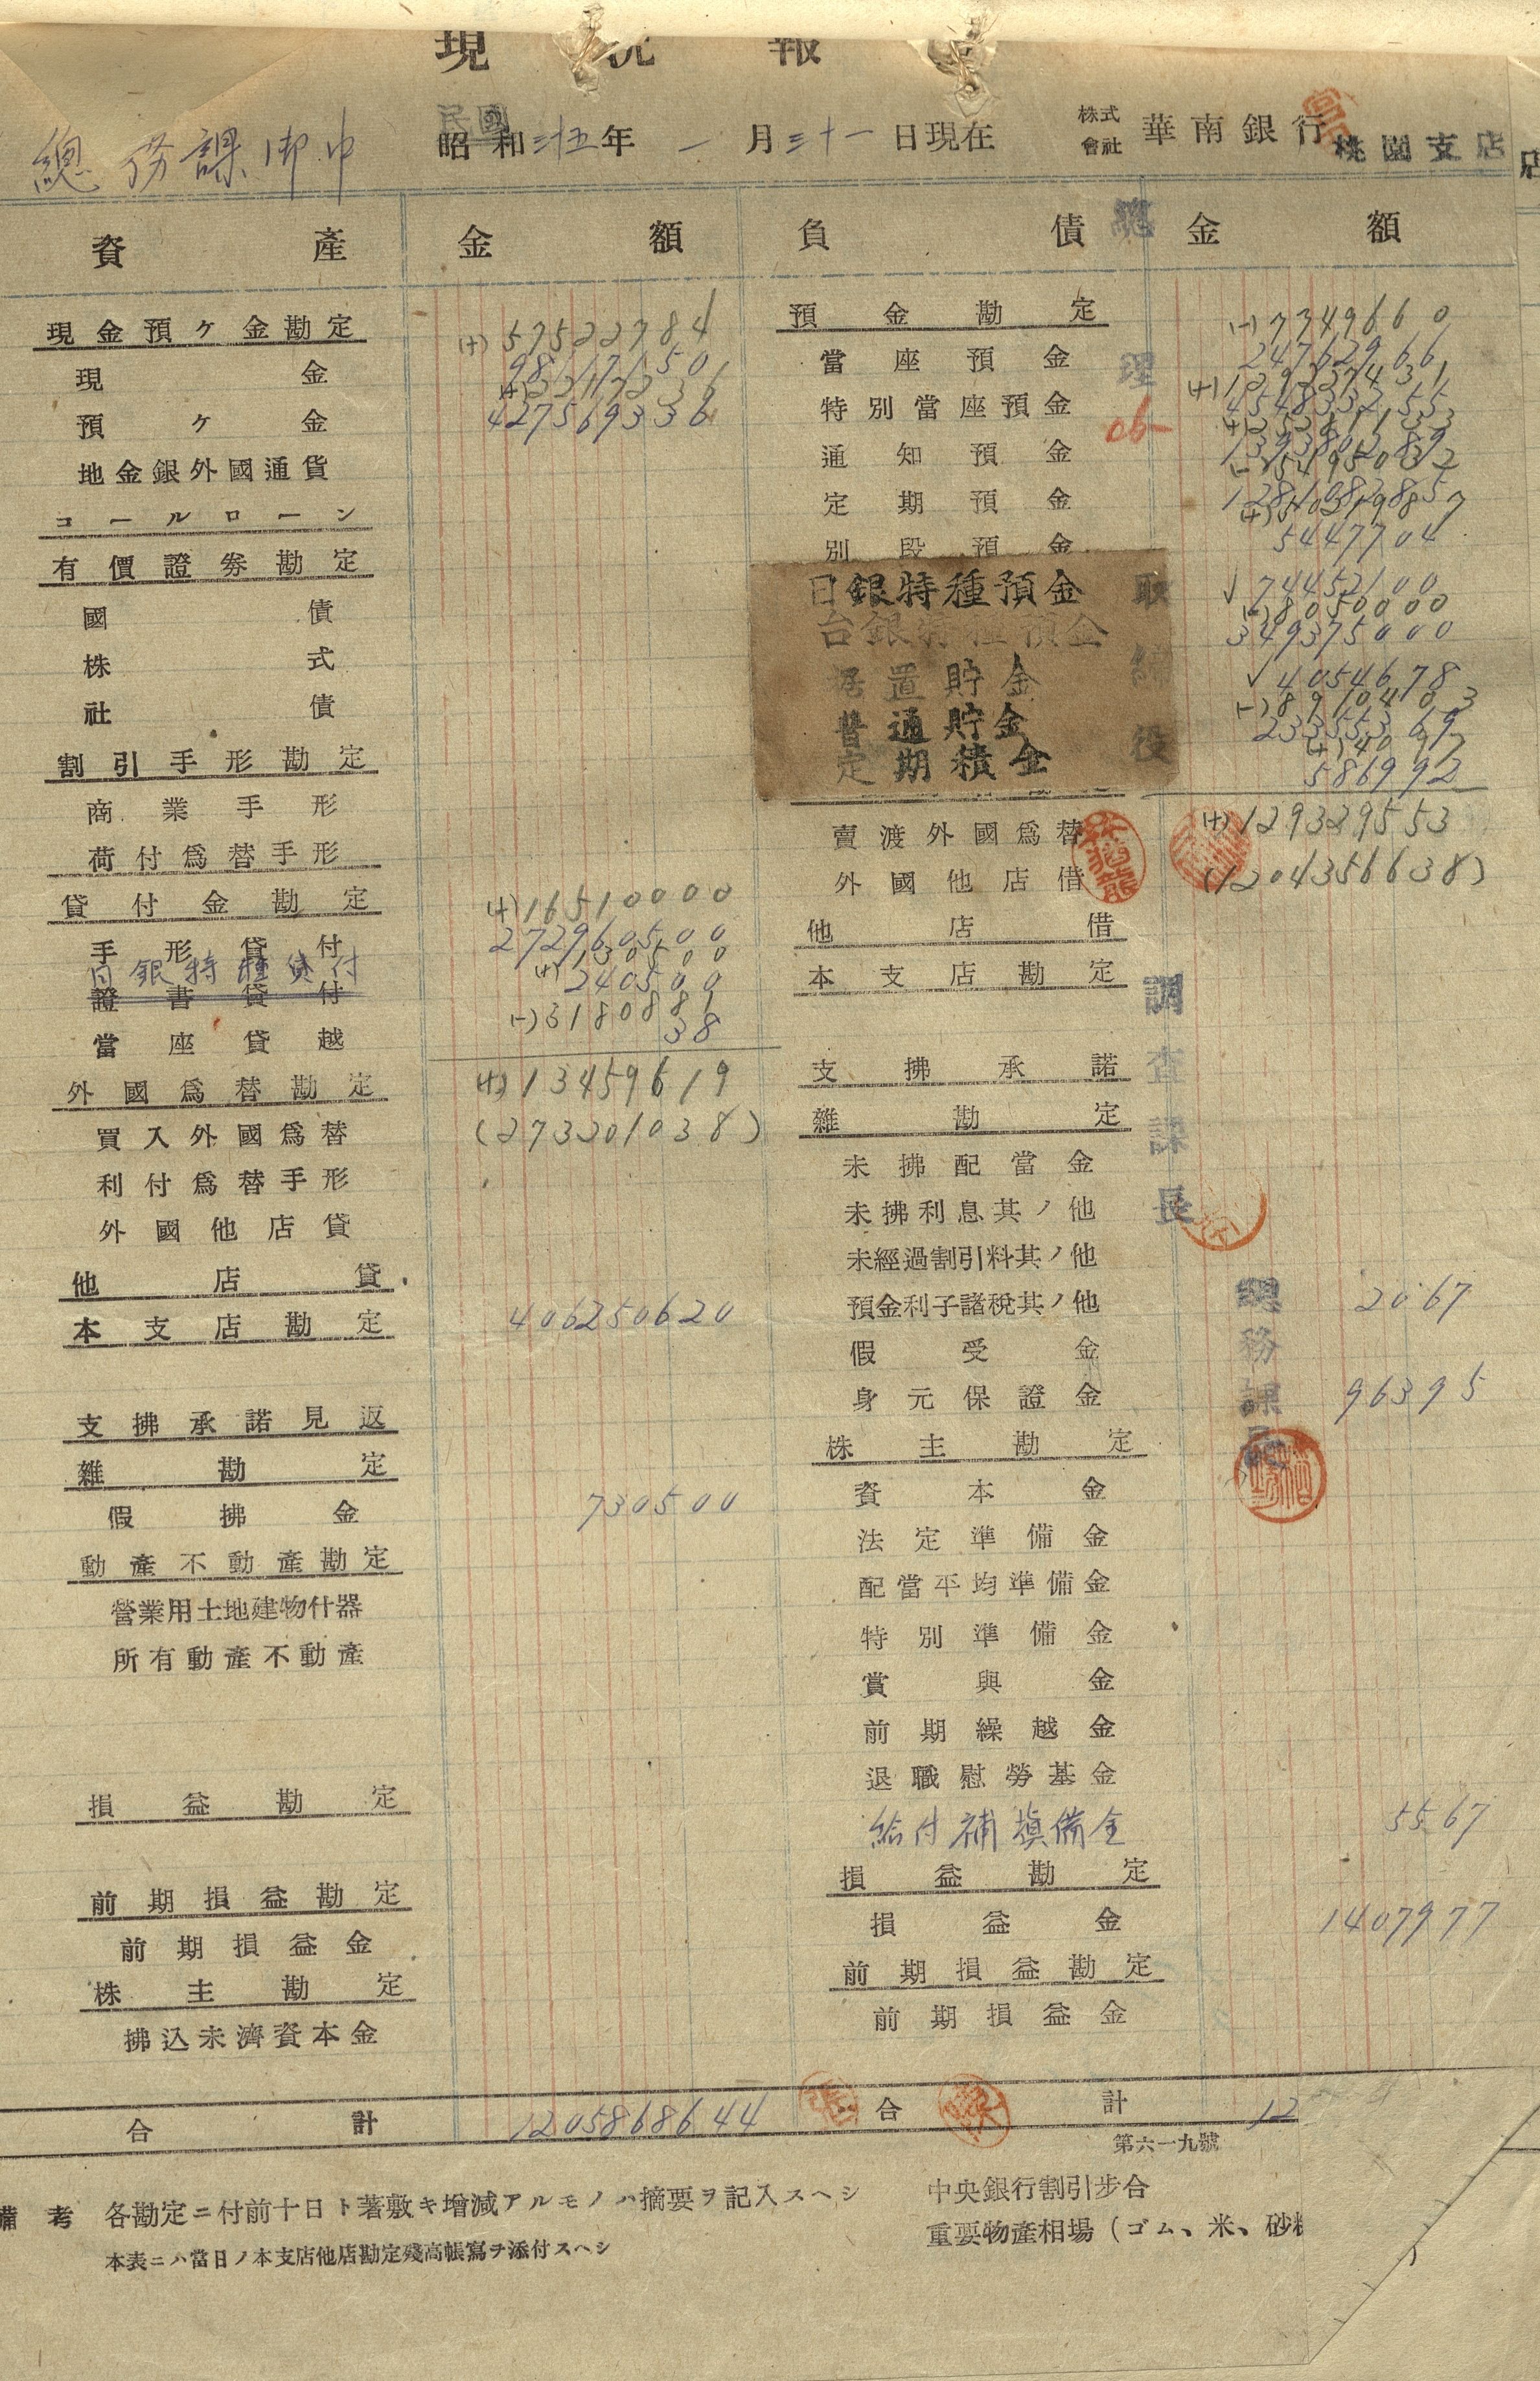 現況報
總務課御中
民國
昭和三十五年一月三十一日現在
株式會社 華南銀行 桃園支店
資產 金額 負債 金額
現金預ケ金勘定 (+)57522784
現金 98117150
預ケ金 427569336
地金銀外國通貨
コールローン
有價證券勘定
國債
株式
社債
割引手形勘定
商業手形
荷付爲替手形
貸付金勘定 (+)16510000
手形貸付 272960500
日銀特種貸付 (+)130500
證書貸付 240500
當座貸越 (-)3180881
38
外國爲替勘定 (+)13459619
買入外國爲替 (273201038)
利付爲替手形
外國他店貸
他店貸
本支店勘定 406250620
支拂承諾見返
雜勘定
假拂金 730500
動產不動產勘定
營業用土地建物什器
所有動產不動產
損益勘定
前期損益勘定
前期損益金
株主勘定
拂込未濟資本金
合計 1205868644
預金勘定 (-)7349660
當座預金 24762966
特別當座預金
通知預金
定期預金
別段預金 5447704
日銀特種預金 74452100
(-)8050000
台銀特種預金 349375000
据置貯金 4054678
(-)8910403
普通貯金 23355369
定期積金 586992
賣渡外國爲替 (+)129329553
外國他店借 (1204356638)
他店借
本支店勘定
支拂承諾
雜勘定
未拂配當金
未拂利息其ノ他
未經過割引料其ノ他
預金利子諸稅其ノ他 2067
假受金
身元保證金 96395
株主勘定
資本金
法定準備金
配當平均準備金
特別準備金
賞與金
前期繰越金
退職慰勞基金
給付補塡備金 5567
損益勘定
損益金 1407977
前期損益勘定
前期損益金
合計 12
總理
取締役
調査課長
總務課長
第六一九號
備考 各勘定ニ付前十日ト著敷キ增減アルモノハ摘要ヲ記入スヘシ
本表ニハ當日ノ本支店他店勘定殘高帳寫ヲ添付スヘシ
中央銀行割引步合
重要物產相場（ゴム、米、砂糖